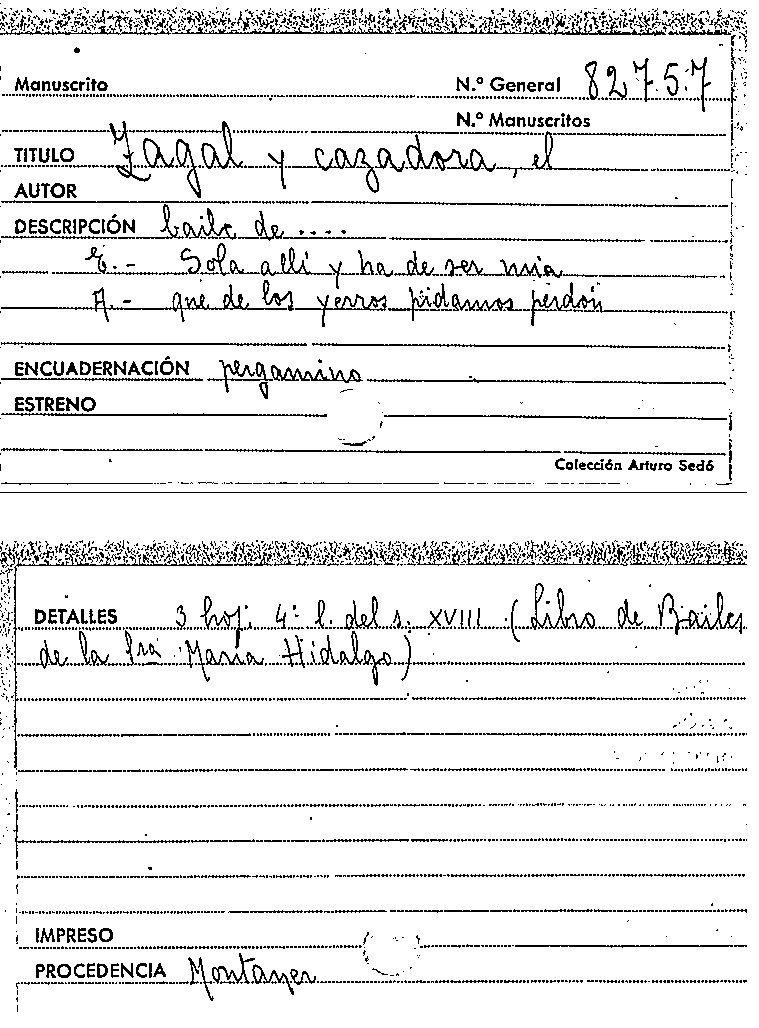 Manuscrito N.º General 82757
N.º Manuscritos
TITULO Zagal y cazadora, el
AUTOR
DESCRIPCIÓN baile de ....
E.- Sola allí y ha de ser mia
A.- que de los yerros pidamos perdón
ENCUADERNACIÓN pergamino
ESTRENO
Colección Arturo Sedó
DETALLES 3 hoj. 4º l. del s. XVIII (Libro de Bailes
de la Sra María Hidalgo)
IMPRESO
PROCEDENCIA Montaner